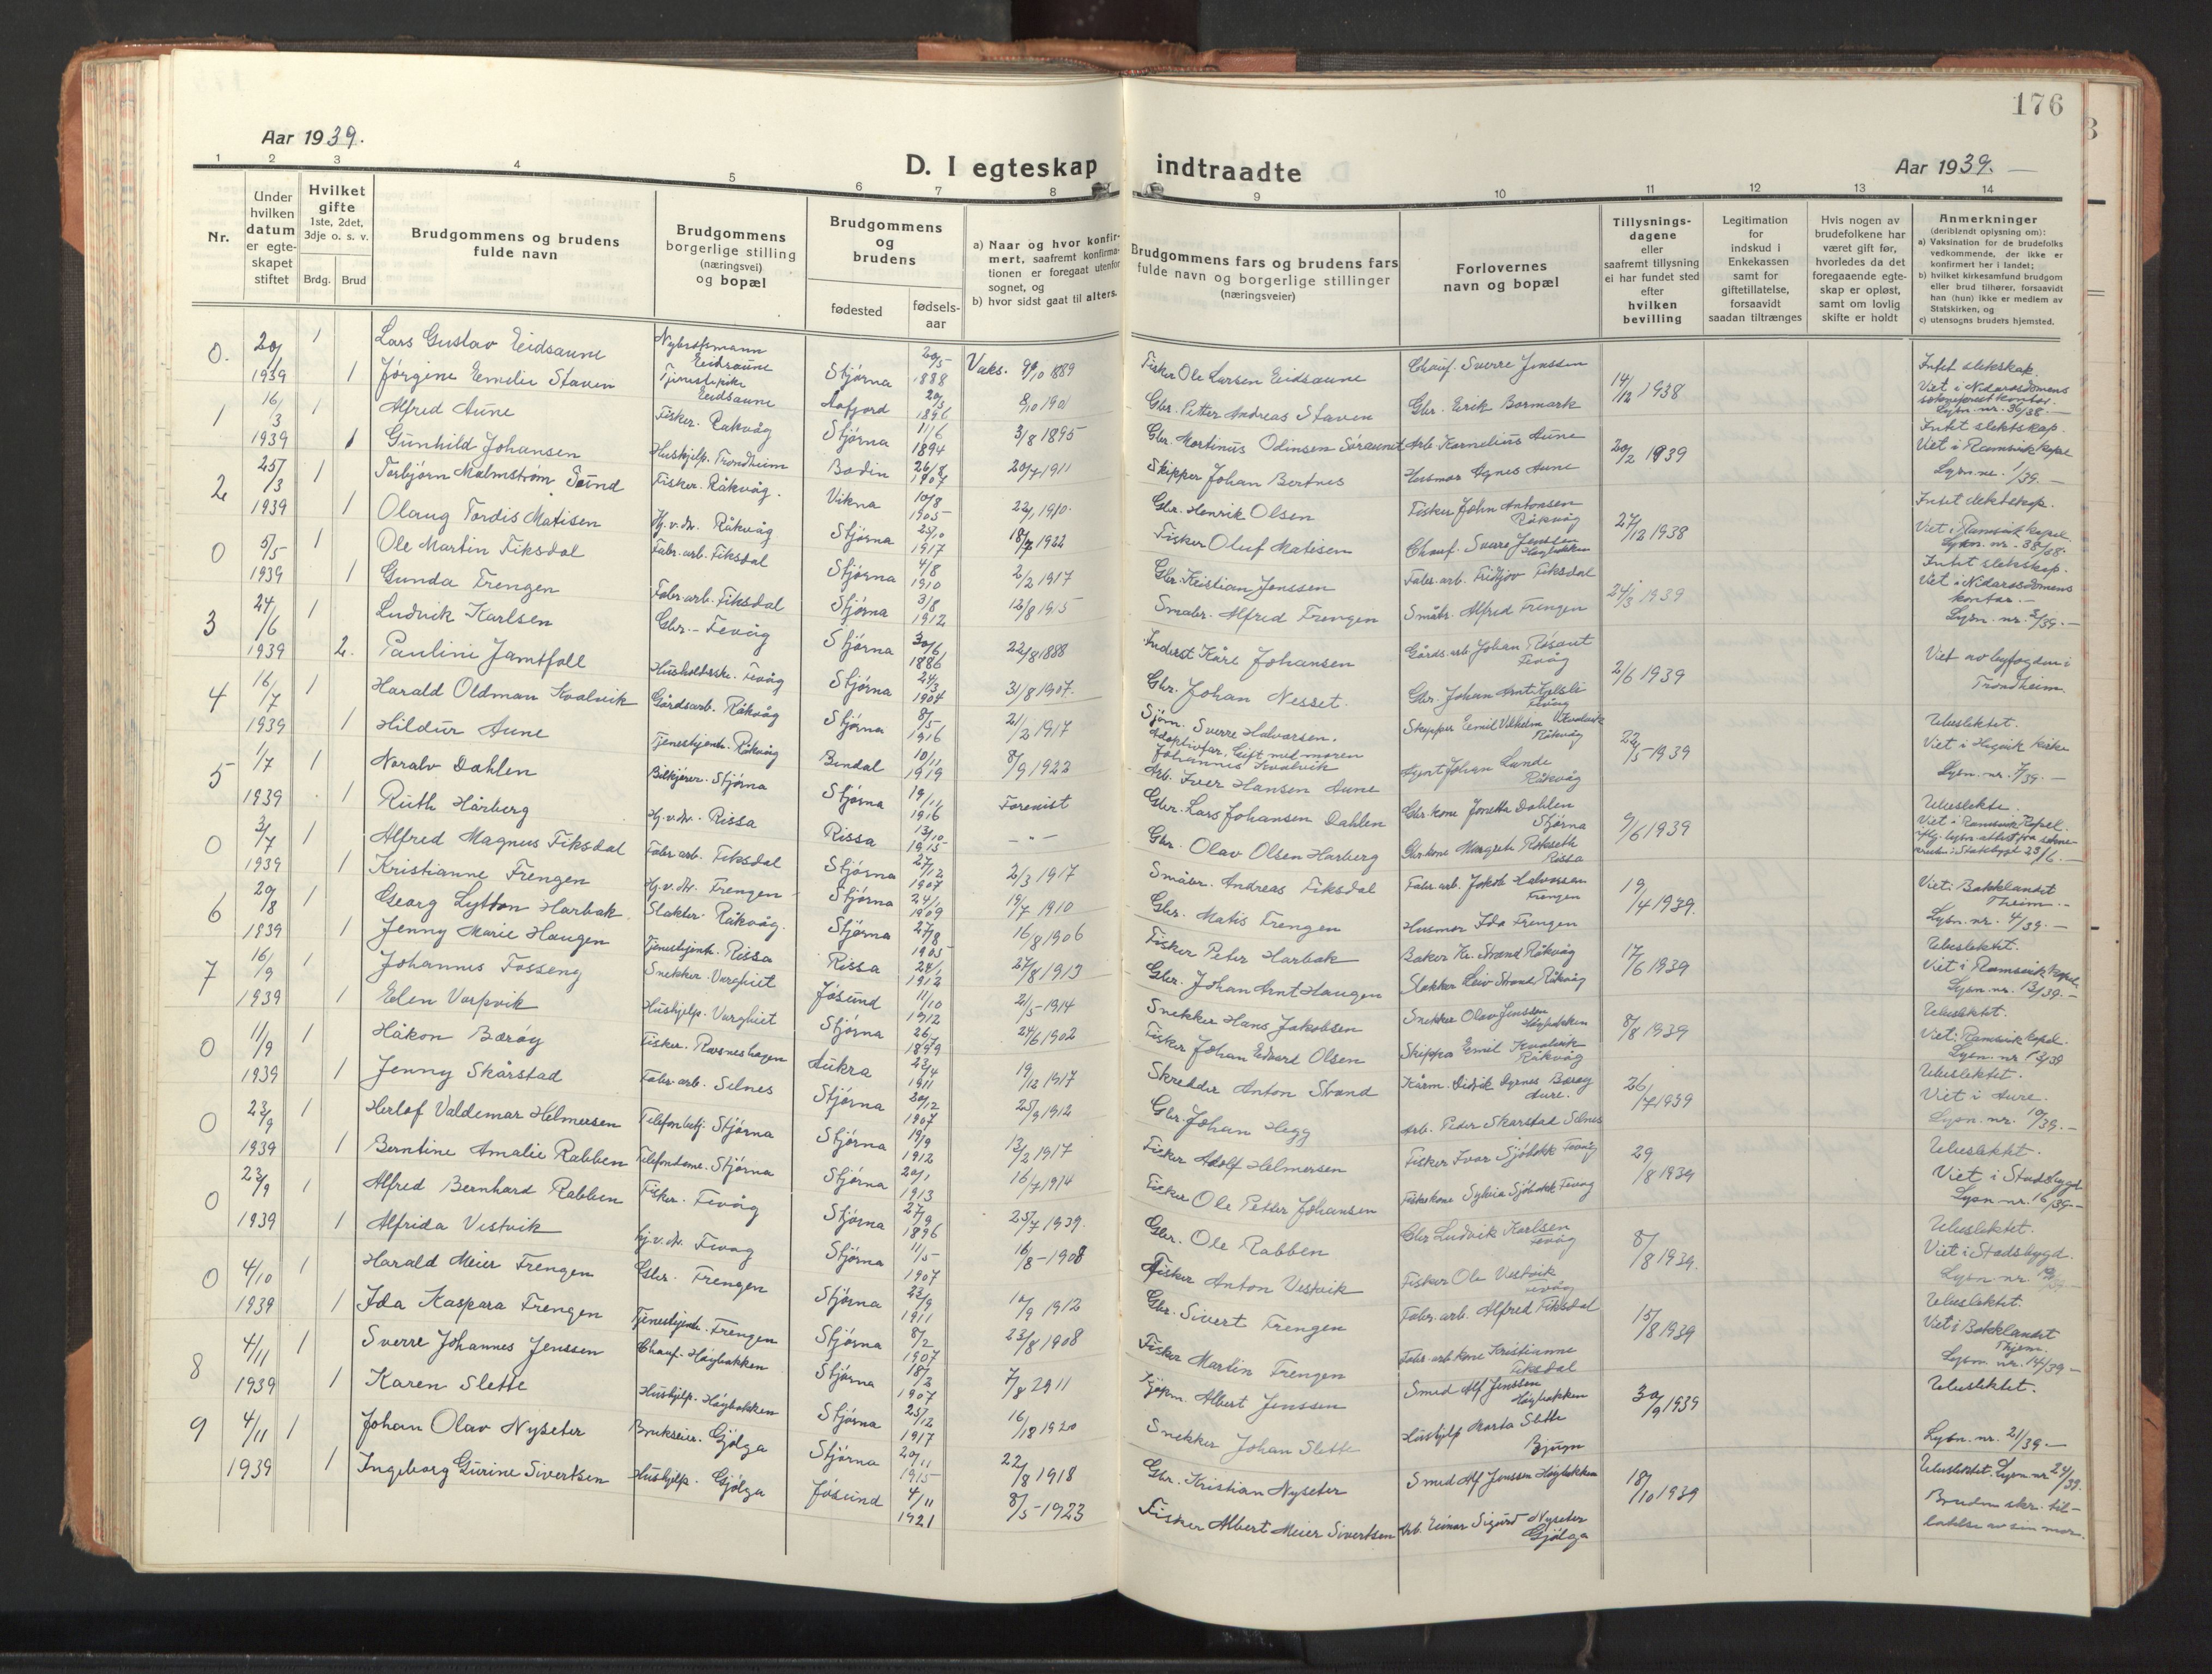 176
Aar 1939.
D. I egteskap indtraadte
Aar 1939.
1 2 3 4 5 6 7 8 9 10 11 12 13 14
Nr.
Under hvilken datum er egteskapet stiftet
Hvilket gifte 1ste, 2det, 3dje o. s. v.
Brdg. Brud
Brudgommens og brudens fulde navn
Brudgommens borgerlige stilling (næringsvei) og bopæl
Brudgommens og brudens
fødested
fødselsaar
a) Naar og hvor konfirmert, saafremt konfirmationen er foregaat utenfor sognet, og
b) hvor sidst gaat til alters.
Brudgommens fars og brudens fars fulde navn og borgerlige stillinger (næringsveier)
Forlovernes navn og bopæl
Tillysningsdagene eller saafremt tillysning ei har fundet sted efter hvilken bevilling
Legitimation for indskud i Enkekassen samt for giftetillatelse, forsaavidt saadan tiltrænges
Hvis nogen av brudefolkene har været gift før, hvorledes da det foregaaende egteskap er opløst, samt om lovlig skifte er holdt
Anmerkninger (deriblandt oplysning om):
a) Vaksination for de brudefolks vedkommende, der ikke er konfirmert her i landet;
b) hvilket kirkesamfund brudgom eller brud tilhører, forsaavidt han (hun) ikke er medlem av Statskirken, og
c) utensogns bruders hjemsted.
0. 20/1 1939 1 Lars Gustav Eidsaune Eidsaune Stjørna 20/5 1888 Fisker Ole Larsen Eidsaune Chauf. Sverre Jenssen 14/12 1938
1 Jørgine Emelie Staven Tjenestepike Eidsaune Aafjord 1896 8/10 1901 Gbr. Petter Andreas Staven Gbr. Erik Bormark
1 16/3 1939 1 Alfred Aune Fisker. Råkvåg Stjørna 11/6 1894 3/8 1895 Gbr. Mortinus Odinsen Arb. Kornelius Aune 20/2 1939
1 Gunhild Johansen Hushjelp. Trondheim Bodin 26/8 1907 20/7 1911 Skipper Johan Bertnes Husmor Agnes Aune Lysn. nr. 1/39.
2 25/3 1939 1 Torbjørn Malmstrøm Sund Fisker. Råkvåg. Vikna 10/8 1905 Gbr. Henrik Olsen Fisker John Antonsen Råkvåg 27/12 1938
1 Olaug Tordis Matisen Hj.v.dr. Råkvåg Stjørna 25/10 1917 18/7 1922 Fisker Oluf Matisen Chauf. Sverre Jenssen Høybakken
0 5/5 1939 1 Ole Martin Fiksdal Fabr. arb. Fiksdal Stjørna 4/8 1910 2/2 1917 Gbr. Kristian Jenssen Fabr. arb. Fridtjov Fiksdal 24/3 1939
1 Gunda Frengen Fabr. arb. Fiksdal Stjørna 3/8 1912 12/8 1915 Småbr. Alfred Frengen Småbr. Alfred Frengen
3 24/6 1939 1 Ludvik Karlsen Gbr. - Fevåg Stjørna 30/6 1886 22/8 1888 Inderst Kåre Johansen Gårds. arb Johan Fevåg 2/6 1939 Viet av byfogden i
2. Pauline Jamtfall Fevåg Stjørna 24/3 1904 31/8 1907. Gbr. Johan Nesset. Gbr. Johan Fevåg Trondheim.
4 16/7 1939 1 Harald Oldman Kvalvik Gårdsarb. Råkvåg Stjørna 8/5 1916 2/2 1917 Sjøm. Sverre Halvorsen. Adoptivfar. Gift med moren Johannes Kvalvik Skipper Emil Råkvåg 22/5 1939 Ubeslektet. Viet i kirke
1 Hildur Aune Tjenestejente. Råkvåg Bindal 10/11 1919 8/9 1922 Arb. Iver Hansen Aune Johan Lunde Råkvåg Lysn. nr. 7/39.
5 1/7 1939 1 Noralv Dahlen Bilkjører. Stjørna Stjørna 19/11 1916 Gbr. Lars Johansen Dahlen Gbr. kone Jonetta Dahlen Stjørna 9/6 1939
1 Ruth Hårberg Hj.v.dr. Rissa Rissa 13/10 1915 Gbr. Olav Olsen Harberg Gbr. kone Margreth Rokseth Rissa
0 3/7 1939 1 Alfred Magnus Fiksdal Fabr arb. Fiksdal Stjørna 27/12 1907 2/3 1917 Småbr. Andreas Fiksdal Fabr. arb. Jakob Halvorsen Frengen 19/4 1939. Viet i Bakklandet
1 Kristianne Frengen Hj.v.dr. Frengen Stjørna 24/1 1909 19/7 1910 Gbr. Matis Frengen Husmor Ida Frengen Lysn. nr. 4/39.
6 20/8 1839 1 Georg Lytton Harbak Slakter. Råkvåg. Stjørna 27/8 1905 16/8 1906 Fisker Peter Harbak Baker Kr. Strand Råkvåg 17/6 1939 Ubeslektet.
1 Jenny Marie Haugen Tjenestejente. Rissa Rissa 24/1 1912 27/8 1913 Gbr. Johan Arnt Haugen Slakter Leiv Strand Råkvåg Lysn. nr. 13/39.
7 16/9 1939 1 Johannes Fosseng Snekker. Varghiet Jøsund 11/10 1912 21/5-1914 Snekker Hans Jakobsen Snekker Olav Jenssen Høybakken 8/8 1939 Ubeslektet.
1 Elen Varpvik Hushjelp. Varghiet Stjørna 26/7 1899 24/6 1902 Fisker Johan Edvard Olsen Skipper Emil Kvalvik Råkvåg
0 11/9 1939 1 Håkon Bærøy Fisker. Ravneshagen Aukra 23/4 1911 19/12 1917 Skredder Anton Strand Bærøy Aure. 26/7 1939 Ubeslektet. Viet i Aure.
1 Jenny Skårstad Fabr. arb. Selnes Stjørna 20/12 1907 25/9 1912 Gbr. Johan Hegg Arb. Peder Skarstad Selnes Lysn. nr. 10/39.
0 23/9 1939 1 Herlof Valdemar Helmersen Telefonbetj. Stjørna Stjørna 19/9 1912 13/2 1917 Fisker Adolf Helmersen Fisker Ivar Sjøbakk Fevåg 29/8 1939 Ubeslektet.
1 Berntine Amalie Rabben Telefondame. Stjørna Stjørna 20/1 1913 16/7 1914 Fisker Ole Petter Johansen Fiskerkone Sylvia Sjøbakk Fevåg Viet i Stadsbygd Lysn. nr. 16/39
0 23/9 1939 1 Alfred Bernhard Rabben Fisker. Fevåg Stjørna 27/9 1896 25/7 1939. Gbr. Ole Rabben Gbr Ludvik Karlsen Fevåg 8/8 1939. Ubeslektet.
1 Alfrida Vestvik hj.v.dr. Fevåg Stjørna 11/5 1907 16/8-1908 Fisker Anton Vestvik Fisker Ole Vestvik Fevåg Viet i Stadsbygd.
0 4/10 1939 1 Harald Meier Frengen Gbr. Frengen Stjørna 23/9 1911 10/9 1912 Gbr. Sivert Frengen Fabr. arb. Alfred Fiksdal 15/8 1939 Ubeslektet.
1 Ida Kaspara Frengen Tjenestejente. Frengen Stjørna 8/2 1907 23/8 1908 Fisker Martin Frengen Fabr. arb. kone Kristianne Fiksdal Viet i Bakklandet Lysn. nr. 14/39
8 4/11 1939 1 Sverre Johannes Jenssen Chauf. Høybakken Stjørna 18/2 1907 7/8 2911 Kjøpm. Albert Jenssen Smed Alf Jenssen Høybakken 30/9 1939 Ubeslektet.
1 Karen Slette Hushjelp. Høybakken Stjørna 25/12 1917 16/18 1920 Snekker Johan Slette Hushjelp Marta Slette Bjugn Lysn. nr. 21/39
9 4/11 1939 1 Johan Olav Nyseter Brukseier. Gjølga Stjørna 20/11 1915 22/8 1918 Gbr. Kristian Nyseter Smed Alf Jenssen Høybakken 18/10 1939 Ubeslektet. Lysn. nr 24/39.
1 Ingeborg Gurine Sivertsen Hushjelp. Gjølga Jøsund 4/11 1921 8/5-1923 Fisker Albert Meier Sivertsen Arb. Einar Sigurd Nyseter Gjølga Bruden skr. tillatelse av sin mor.